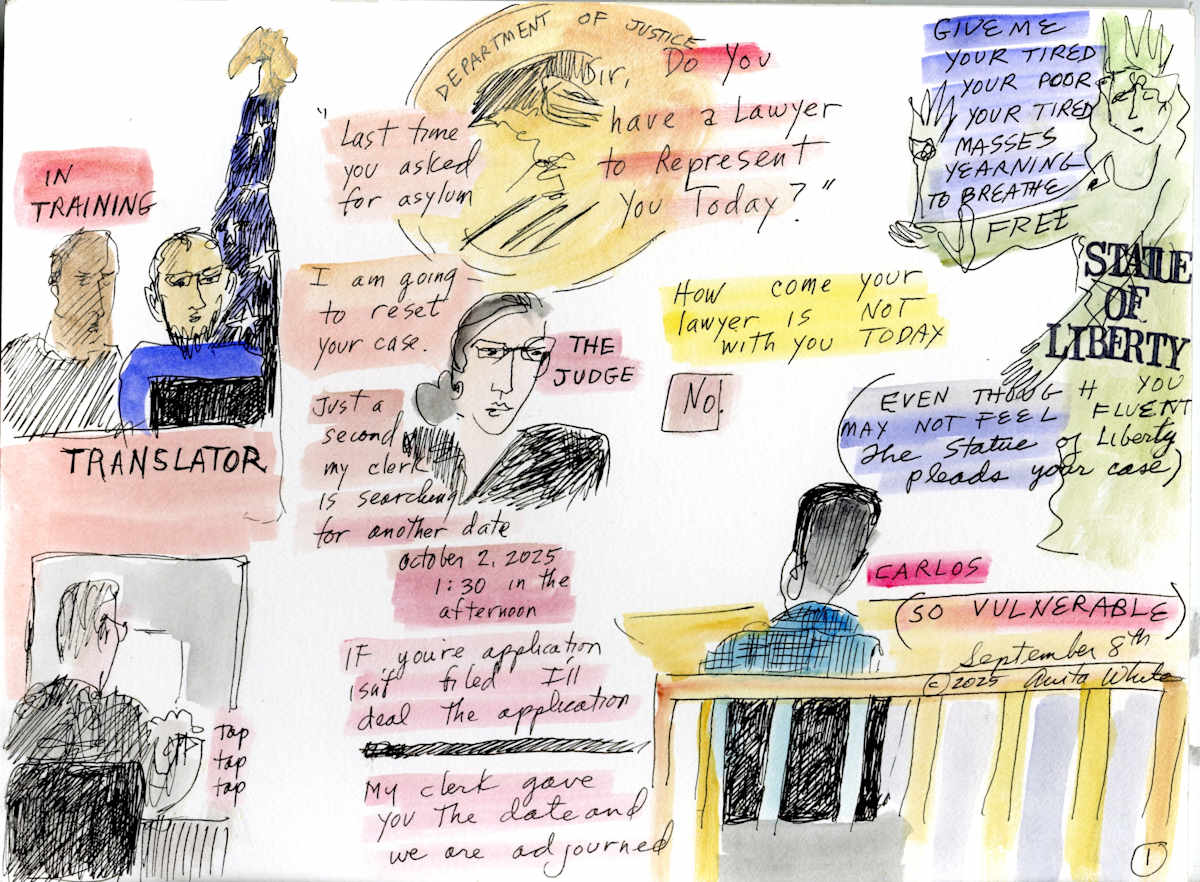 IN
TRAINING
TRANSLATOR
TAP
TAP
TAP
DEPARTMENT OF JUSTICE
"Last time
you asked
for asylum
I am going
to reset
your case.
Just a
second
my clerk
is searching
for another date
October 2, 2025
1:30 in the
afternoon
IF you're application
isn't filed I'll
deal the application
My clerk gave
you the date and
we are adjourned
THE
JUDGE
Sir, Do You
have a Lawyer
to Represent
You Today?"
How come your
lawyer is NOT
with you TODAY
No!
GIVE ME
YOUR TIRED
YOUR POOR
YOUR TIRED
MASSES
YEARNING
TO BREATHE
FREE
STATUE
OF
LIBERTY
(EVEN THOUGH YOU
MAY NOT FEEL FLUENT
The Statue of Liberty
pleads your case)
CARLOS
(SO VULNERABLE)
September 8th
©2025 Anita White
1